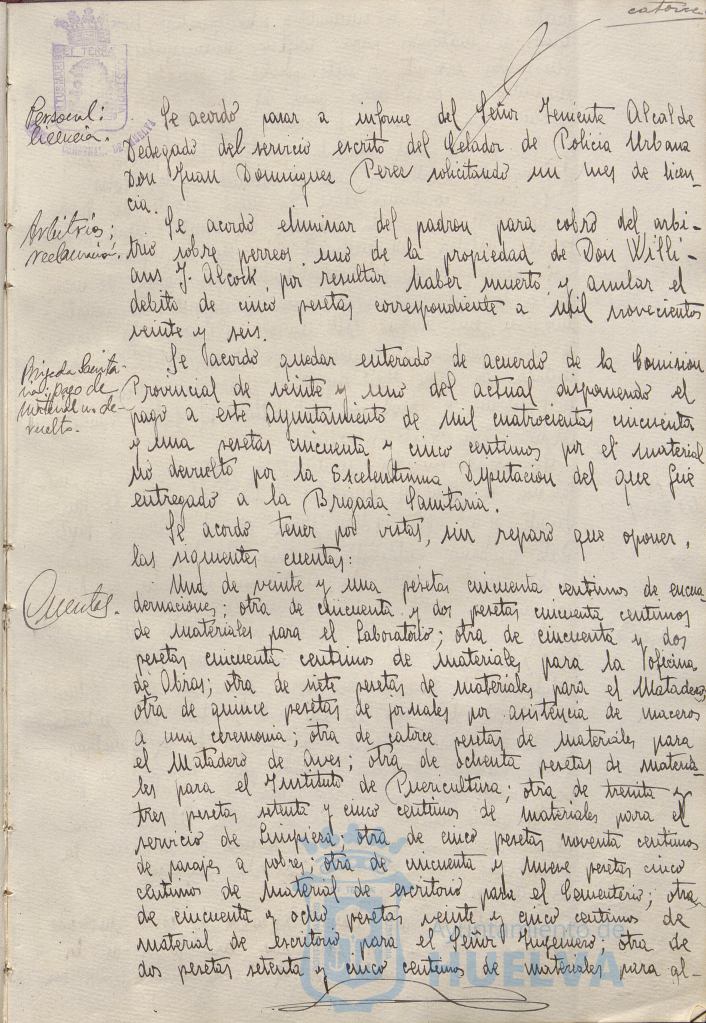 catorce
Personal:
licencia.
Se acordó pasar a informe del Señor Teniente Alcalde
Dedegado del servicio escrito del Celador de Policia Urbana
Don Juan Dominguez Perez solicitando un mes de licen-
cia.
Arbitrios;
reclamación.
Se acordó eliminar del padron para cobro del arbi-
trio sobre perreos, uno de la propiedad de Don Willi-
ans J. Alcock, por resultar haber muerto y anular el
debito de cinco pesetas correspondiente a mil novecientos
veinte y seis.
Brigada Sanita-
ria; pago de
material no de-
vuelto.
Se acordó quedar enterado de acuerdo de la Comision
Provincial de veinte y uno del actual disponiendo el
pago a este Ayuntamiento de mil cuatrocientas cincuenta
y una pesetas cincuenta y cinco centimos por el material
no devuelto por la Escelentisima Diputacion del que fué
entregado a la Brigada Sanitaria.
Se acordó tener por vistas, sin reparo que oponer,
las siguientes cuentas:
Cuentas.
Una de veinte y una pesetas cincuenta centimos de encua
dernaciones; otra de cincuenta y dos pesetas cincuenta centimos
de materiales para el Laboratorio; otra de cincuenta y dos
pesetas cincuenta centimos de materiales para la oficina
de Obras; otra de siete pesetas de materiales para el Matadero;
otra de quince pesetas de jornales por asistencia de maceros
a una ceremonia; otra de catorce pesetas de materiales para
el Matadero de Aves; otra de ochenta pesetas de materia-
les para el Instituto de Puericultura; otra de treinta y
tres pesetas setenta y cinco centimos de materiales para el
servicio de Limpieza; otra de cinco pesetas noventa centimos
de pasajes a pobres; otra de cincuenta y nueve pesetas cinco
centimos de material de escritorio para el Cementerio; otra
de cincuenta y ocho pesetas veinte y cinco centimos de
material de escritorio para el Señor Ingeniero; otra de
dos pesetas setenta y cinco centimos de materiales para al-
Ayuntamiento de
HUELVA